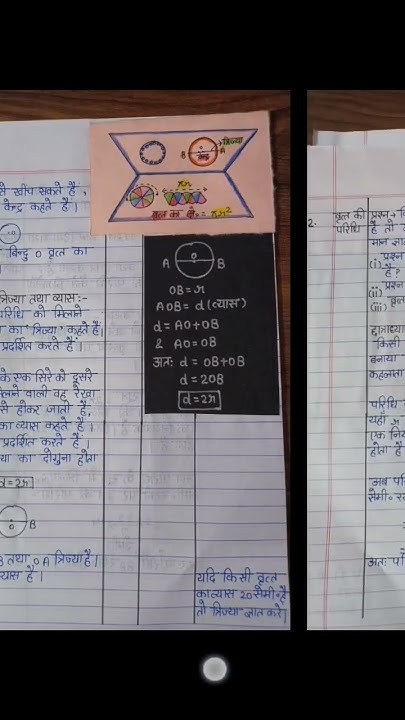 से खींच सकते हैं,
केन्द्र कहते हैं।
बिन्दु O वृत्त का
त्रिज्या तथा व्यास:-
परिधि को मिलाने
का 'त्रिज्या' कहते हैं
प्रदर्शित करते हैं।
के एक सिरे को दूसरे
मिलाने वाली वह रेखा
से होकर जाती है,
का व्यास कहते हैं।
प्रदर्शित करते हैं।
या का दोगुना होता
d=2r
O B
B तथा OA त्रिज्या है।
व्यास है।
त्रिज्या
B केन्द्र A
πr
r
वृत्त का क्षे०= πr²
A O B
OB=r
AOB=d(व्यास)
d=AO+OB
& AO=OB
अतः d=OB+OB
d=2OB
d=2r
यदि किसी वृत्त
का व्यास 20 सेमी० है
तो त्रिज्या ज्ञात करें।
2. वृत्त की
परिधि
प्रश्न
है तो
मान ज्ञात
(i) प्रश्न
है?
(ii) प्रश्न
(iii) वृत्त
छात्राध्या
किसी
बनाया
कहलाता
परिधि
यहाँ
एक नि
होता है
अब परि
सेमी०
अतः परि